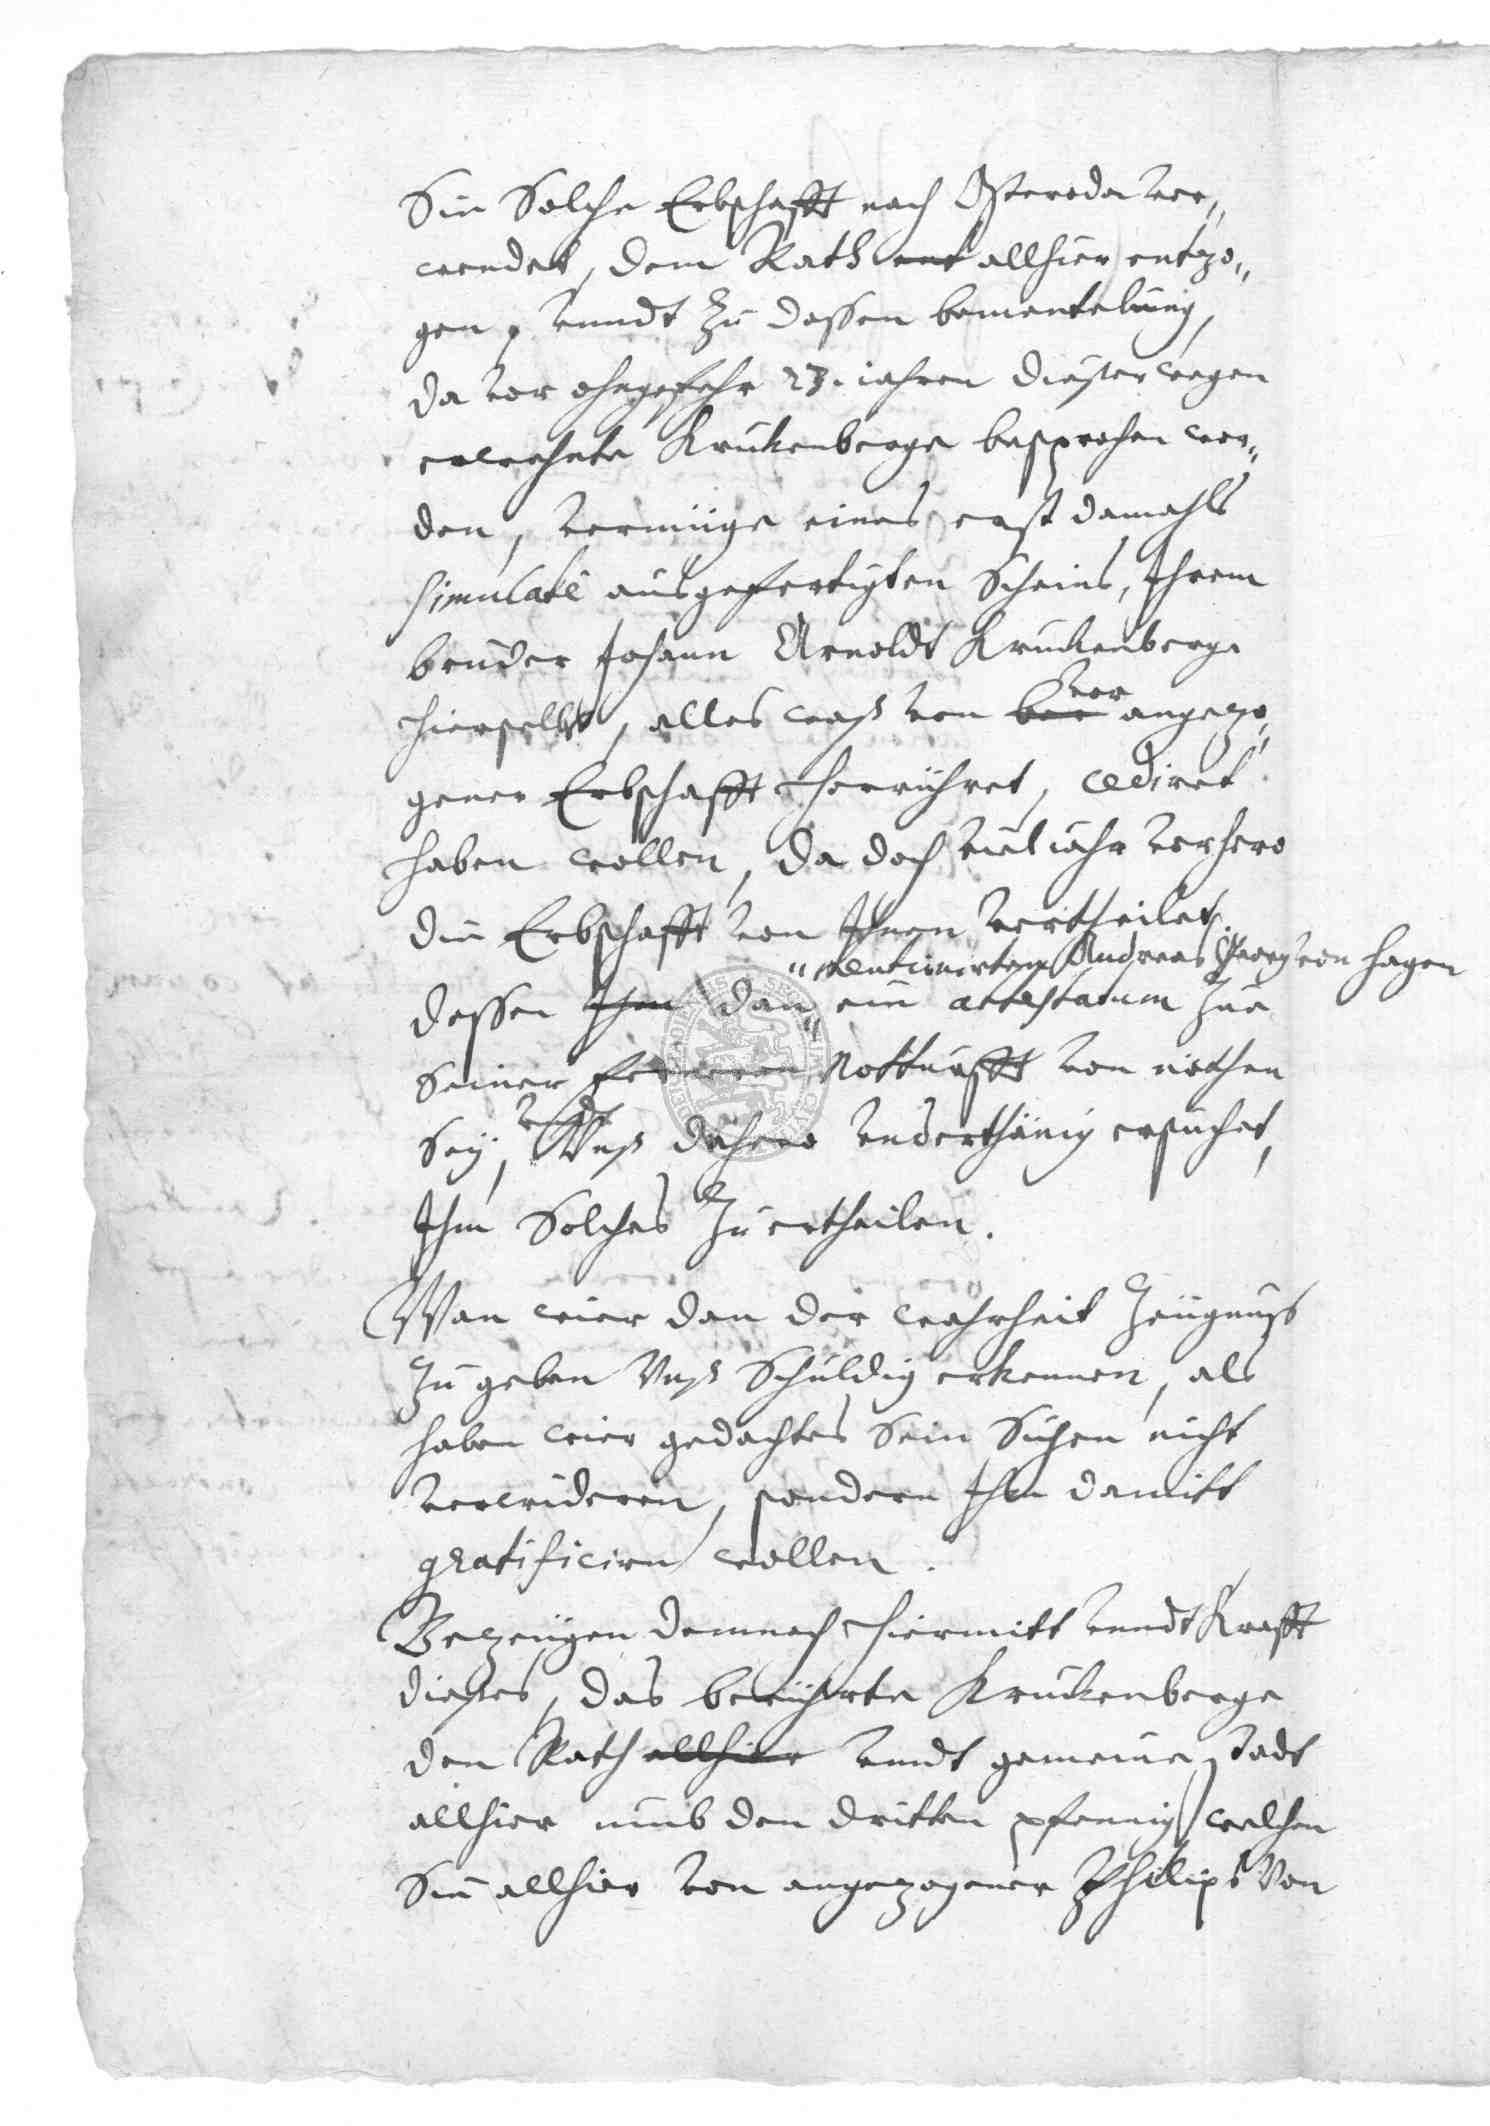 Sie Solche Erbschafft nach Osteroda ver„
wendet, dem Rath ent allhier entzo„
gen, vnndt Zu dessen bemantelung,
da vor ohngefehr 23. iahren dieserwegen
erwehnte Kruckenberge besprochen wor„
den, vermüge eines erst damahls
simulate ausgefertigten Scheins, Ihrem
bruder Johann Arnoldt Kruckenberge
hierselbst, alles waß von ber vor angezo„
gener Erbschafft herrühret, cediret
haben wollen, da doch viel iahr vorhero
die Erbschafft von Ihnen vertheilet.
„mentionirtem Andreas Georg von Hagen
dessen Ihm dan„ ein attestatum Zue
Seiner ferneren Notturfft von nöthen
Seÿ, vndt Vnß dahero vnderthänig ersuchet,
Ihm Solches Zu ertheilen.
Wan wier dan der wahrheit Zeügnuß
Zu geben Vnß Schuldig erkennen, als
haben wier gedachtes Sein Suchen nicht
verwideren, sondern Ihm damitt
gratificiren wollen.
Bezeügen demnach hiermitt vnndt Krafft
dieses, das berührte Kruckenberge
den Rath allhier vnndt gemeine stadt
allhier umb den dritten pfennig welchen
Sie allhier von angezogener Philips Von